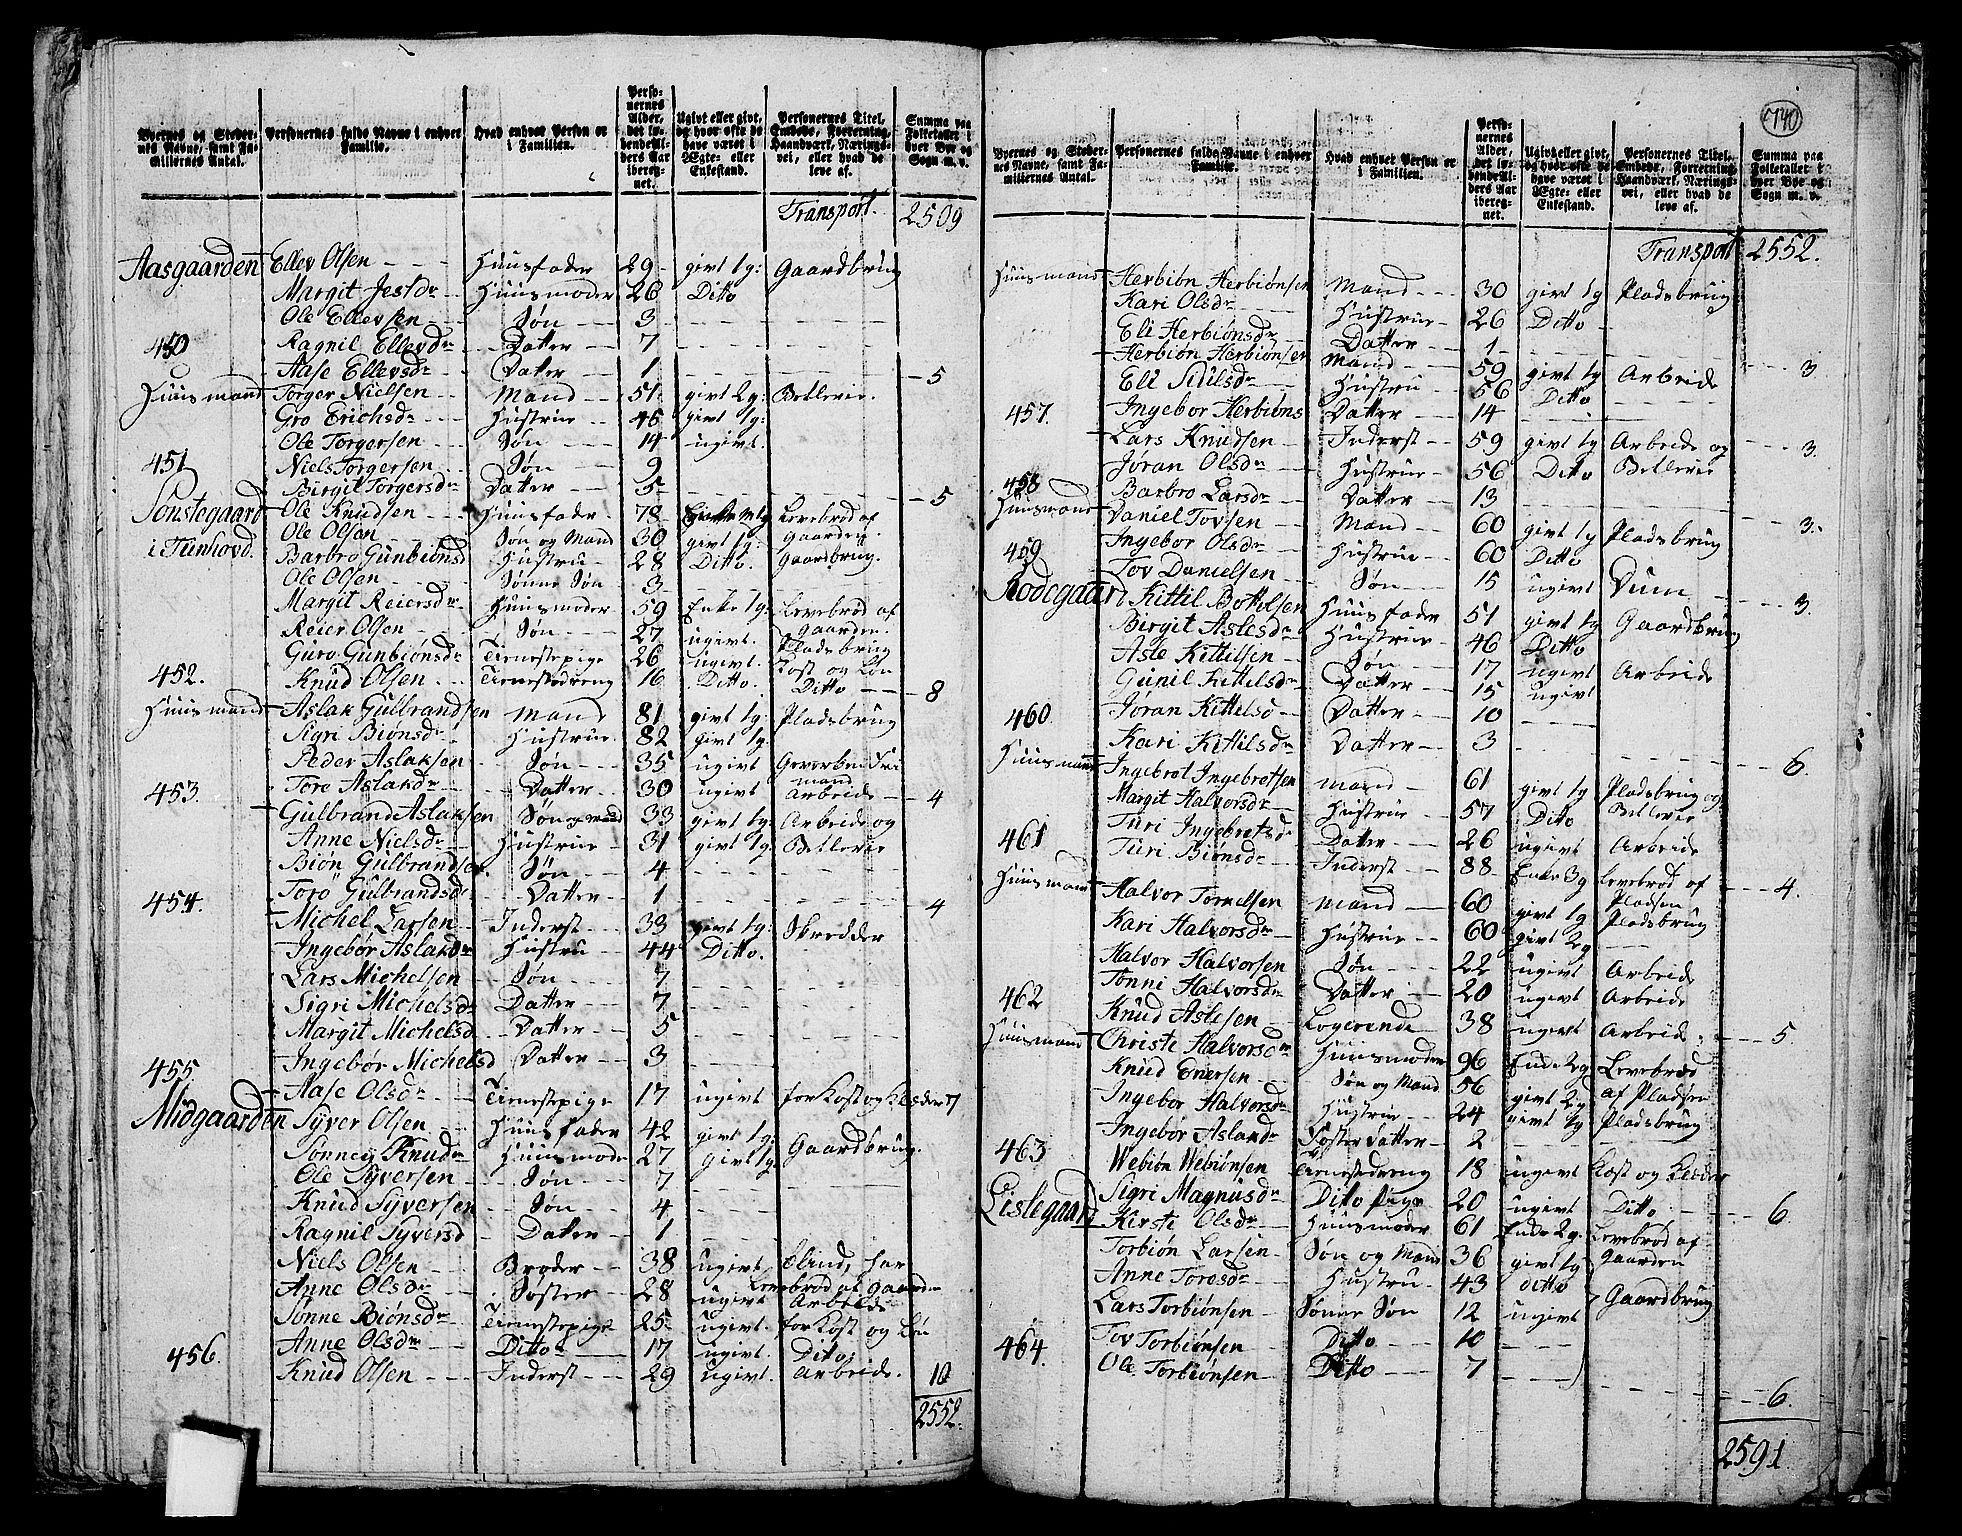 740
Byernes og Steder- Personernes fulde Navne i enhver Hvad enhver Person er Perso- Ugivt eller givt, Personernes Titel, Summa paa
nes Navne, samt Fa- Familie. i Familien. nernes og hvor ofte de Embede, Forretning, Folketallet i
milliernes Antal. Alder, have været i Haandværk, Nærings- hver Bye og
det lø- Ægte- eller vei, eller hvad de Sogn m. v.
bende Al- Enkestand. leve af.
ders Aar
ibereg-
net.
Transport. 2509
Aasgaarden Ellev Olsen Huusfader 29 givt 1g: Gaardbrug
Margit Jestdr Huusmoder 26 Ditto
Ole Ellevsen Søn 3
450 Ragnil Ellevdr Datter 7
Aase Ellevsdr Datter 1 5
Huusmand Torger Nielsen Mand 51 givt 2g: Betlerie
Gro Erichsdr Hustrue 46 givt 1g:
Ole Torgersen Søn 14 ugivt.
451 Niels Torgersen Søn 9
Birgit Torgersdr Datter 5 5
Sønstegaard Ole Knudsen Huusfader 78 Enkem. 1g Levebrød af
i Tunhovd. Ole Olsen Søn og Mand 30 givt 1g: Gaarden
Barbro Gunbiønsd Hustru 28 Ditto. Gaardbrug.
Ole Olsen Sønne Søn 3
Margit Reiersdr Huusmoder 59 Enke 1g: Levebrød af
Reier Olsen Søn 27 ugivt. Gaarden.
Guro Gunbiønsdr Tienestepige 26 ugivt. Pladsbrug
452. Knud Olsen Tienestedreng 16 Ditto. Kost og Løn
Ditto 8
Huusmand Aslak Gulbrandsen Mand 81 givt 1g: Pladsbrug
Sigri Biønsdr Hustrue 82 givt 1g.
Peder Aslaksen Søn 35 ugivt Geverben Fri
mand
453. Toro Aslakdr Datter 30 ugivt Arbeide 4
Gulbrand Aslaksen Søn og mand 33 givt 1g: Arbeide og
Anne Nielsdr Hustrue 31 givt 1g: Betlerie
Biøn Gulbrandsen Søn 4
454. Toro Gulbrandsdr Datter 1 4
Michel Larsen Inderst 33 givt 1g: Skredder
Ingebør Aslakdr Hustru 44 Ditto.
Lars Michelsen Søn 7
Sigri Michelsdr Datter 7
Margit Michelsd Datter 5
455. Ingebør Michelsd Datter 3
Aase Olsdr Tienestepige 17 ugivt for Kost og Klæder 7
Midgaarden Syver Olsen Huusfader 42 givt 1g: Gaardbrug.
Sønnev Knudr Huusmoder 27 givt 1g
Ole Syversen Søn 7
Knud Syversen Søn 4
Ragnil Syversd Datter 1
Niels Olsen Broder 38 ugivt blind, har
Levebrød af Gaarden
Anne Olsdr Søster 28 ugivt Arbeide
Sønne Biønsdr Tienestepige 25 ugivt. for Kost og Løn
456. Anne Olsdr Ditto 17 ugivt. Ditto.
Knud Olsen Inderst 29 ugivt. Arbeide. 10
2552.
Byernes og Steder- Personernes fulde Navne i enhver Hvad enhver Person er Perso- Ugivt eller givt, Personernes Titel, Summa paa
nes Navne, samt Fa- Familie. i Familien. nernes og hvor ofte de Embede, Forretning, Folketallet i
milliernes Antal. Alder, have været i Haandværk, Nærings- hver Bye og
det lø- Ægte- eller vei, eller hvad de Sogn m. v.
bende Al- Enkestand. leve af.
ders Aar
ibereg-
net.
Transport 2552.
Huusmand Herbiøn Herbiønsen Mand 30 givt 1g Pladsbrug
Kari Olsdr Hustrue 26 Ditto
Eli Herbiønsdr Datter 1 3
Herbiøn Herbiønsen Mand 59 givt 1g Arbeide
Eli Sidilsdr Hustru 56 Ditto
457. Ingebor Herbiøns Datter 14 3.
Lars Knudsen Inderst 59 givt 1g Arbeide og
Jøran Olsdr Hustrue 56 Ditto Betlerie
458 Barbro Larsdr Datter 13 3.
Huusmand Daniel Tovsen Mand 60 givt 1g Pladsbrug
459 Ingebor Olsdr Hustrue 60 Ditto
Tov Danielsen Søn 15 ugivt Dum 3
Rodegaard Kittil Bottolsen Huusfader 51 givt 1g Gaardbrug
Birgit Aslesdr Hustrue 46 Ditto
Asle Kittelsen Søn 17 ugivt Arbeide
Gunil Kittelsdr Datter 15 ugivt
460 Jøran Kittelsd Datter 10
Kari Kittilsdr Datter 3 6.
Huusmand Ingebrot Ingebrotsen Mand 61 givt 1g Pladsbrug og
Margit Halvorsdr Hustrue 57 Ditto Betlerie
461 Turi Ingebrotsdr Datter 26 ugivt Arbeide
Turi Biønsdr Inderst 88 Enke 3g Levebrød af
Pladsen 4.
Huusmand Halvor Tornelsen Mand 60 givt 1g Pladsbrug
Kari Halvorsdr Hustrue 60 givt 2g
Halvor Halvorsen Søn 22 ugivt Arbeide
Tonni Halvorsdr Datter 20 ugivt Arbeide
462 Knud Aslesen Logerende 38 ugivt Arbeide 5.
Huusmand Christi Halvorsdr Huusmoder 96 Enke 2g Levebrød
Knud Enersen Søn og Mand 56 givt 2g af Pladsen
Ingebor Halvorsdr Hustrue 24 givt 1g Pladsbrug
Ingebor Aslakdr Foster Datter 2
463 Webiøn Webiønsen Tienestedreng 18 ugivt Kost og Klæder
Sigri Magnusdr Ditto pige 20 ugivt Ditto 6.
Lislegaard Kirsti Olsdr Huusmoder 61 Enke 2g. Levebrød af
Torbiøn Larsen Søn og Mand 36 givt 1g Gaarden
Anne Torosdr Hustru 43 ditto Gaardbrug
Lars Torbiønsen Sønne Søn 12 ugivt
464. Tov Torbiønsen Ditto 10
Ole Torbiønsen Ditto 7 6.
2591